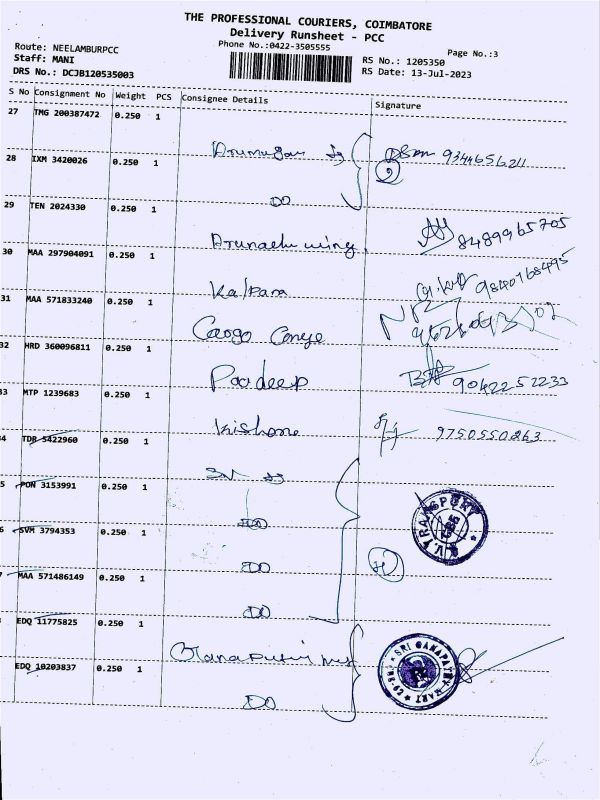 THE PROFESSIONAL COURIERS, COIMBATORE
Delivery Runsheet - PCC
Phone No.:0422-3505555
Page No.:3
Route: NEELAMBURPCC
Staff: MANI
DRS No.: DCJB120535003
RS No.: 1205350
RS Date: 13-Jul-2023
S No Consignment No Weight PCS Consignee Details Signature
27 TMG 200387472 0.250 1
9344656211
28 IXM 3420026 0.250 1
DO
29 TEN 2024330 0.250 1
8489965705
30 MAA 297904091 0.250 1
Kalpana 9840768495
31 MAA 571833240 0.250 1
32 HRD 360096811 0.250 1
Pardeep 9042252233
33 MTP 1239683 0.250 1
Kishore 9750550263
34 TDR 5422960 0.250 1
5 PON 3153991 0.250 1
DO
6 SVM 3794353 0.250 1
DO
7 MAA 571486149 0.250 1
DO
EDQ 11775825 0.250 1
EDQ 10203837 0.250 1
DO
TRANSPORT
SRI GANAPATHY MART